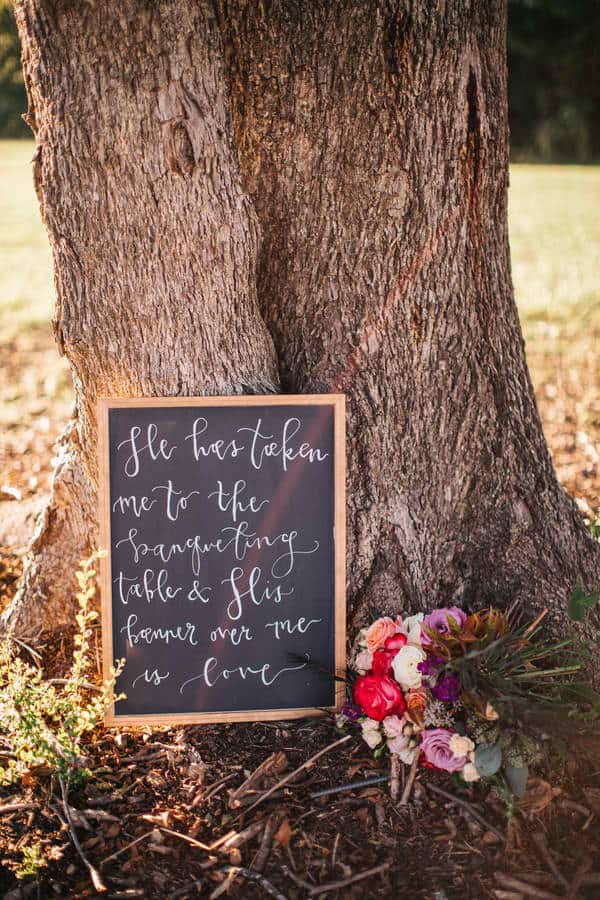 He has taken
me to the
banqueting
table & His
banner over me
is love.